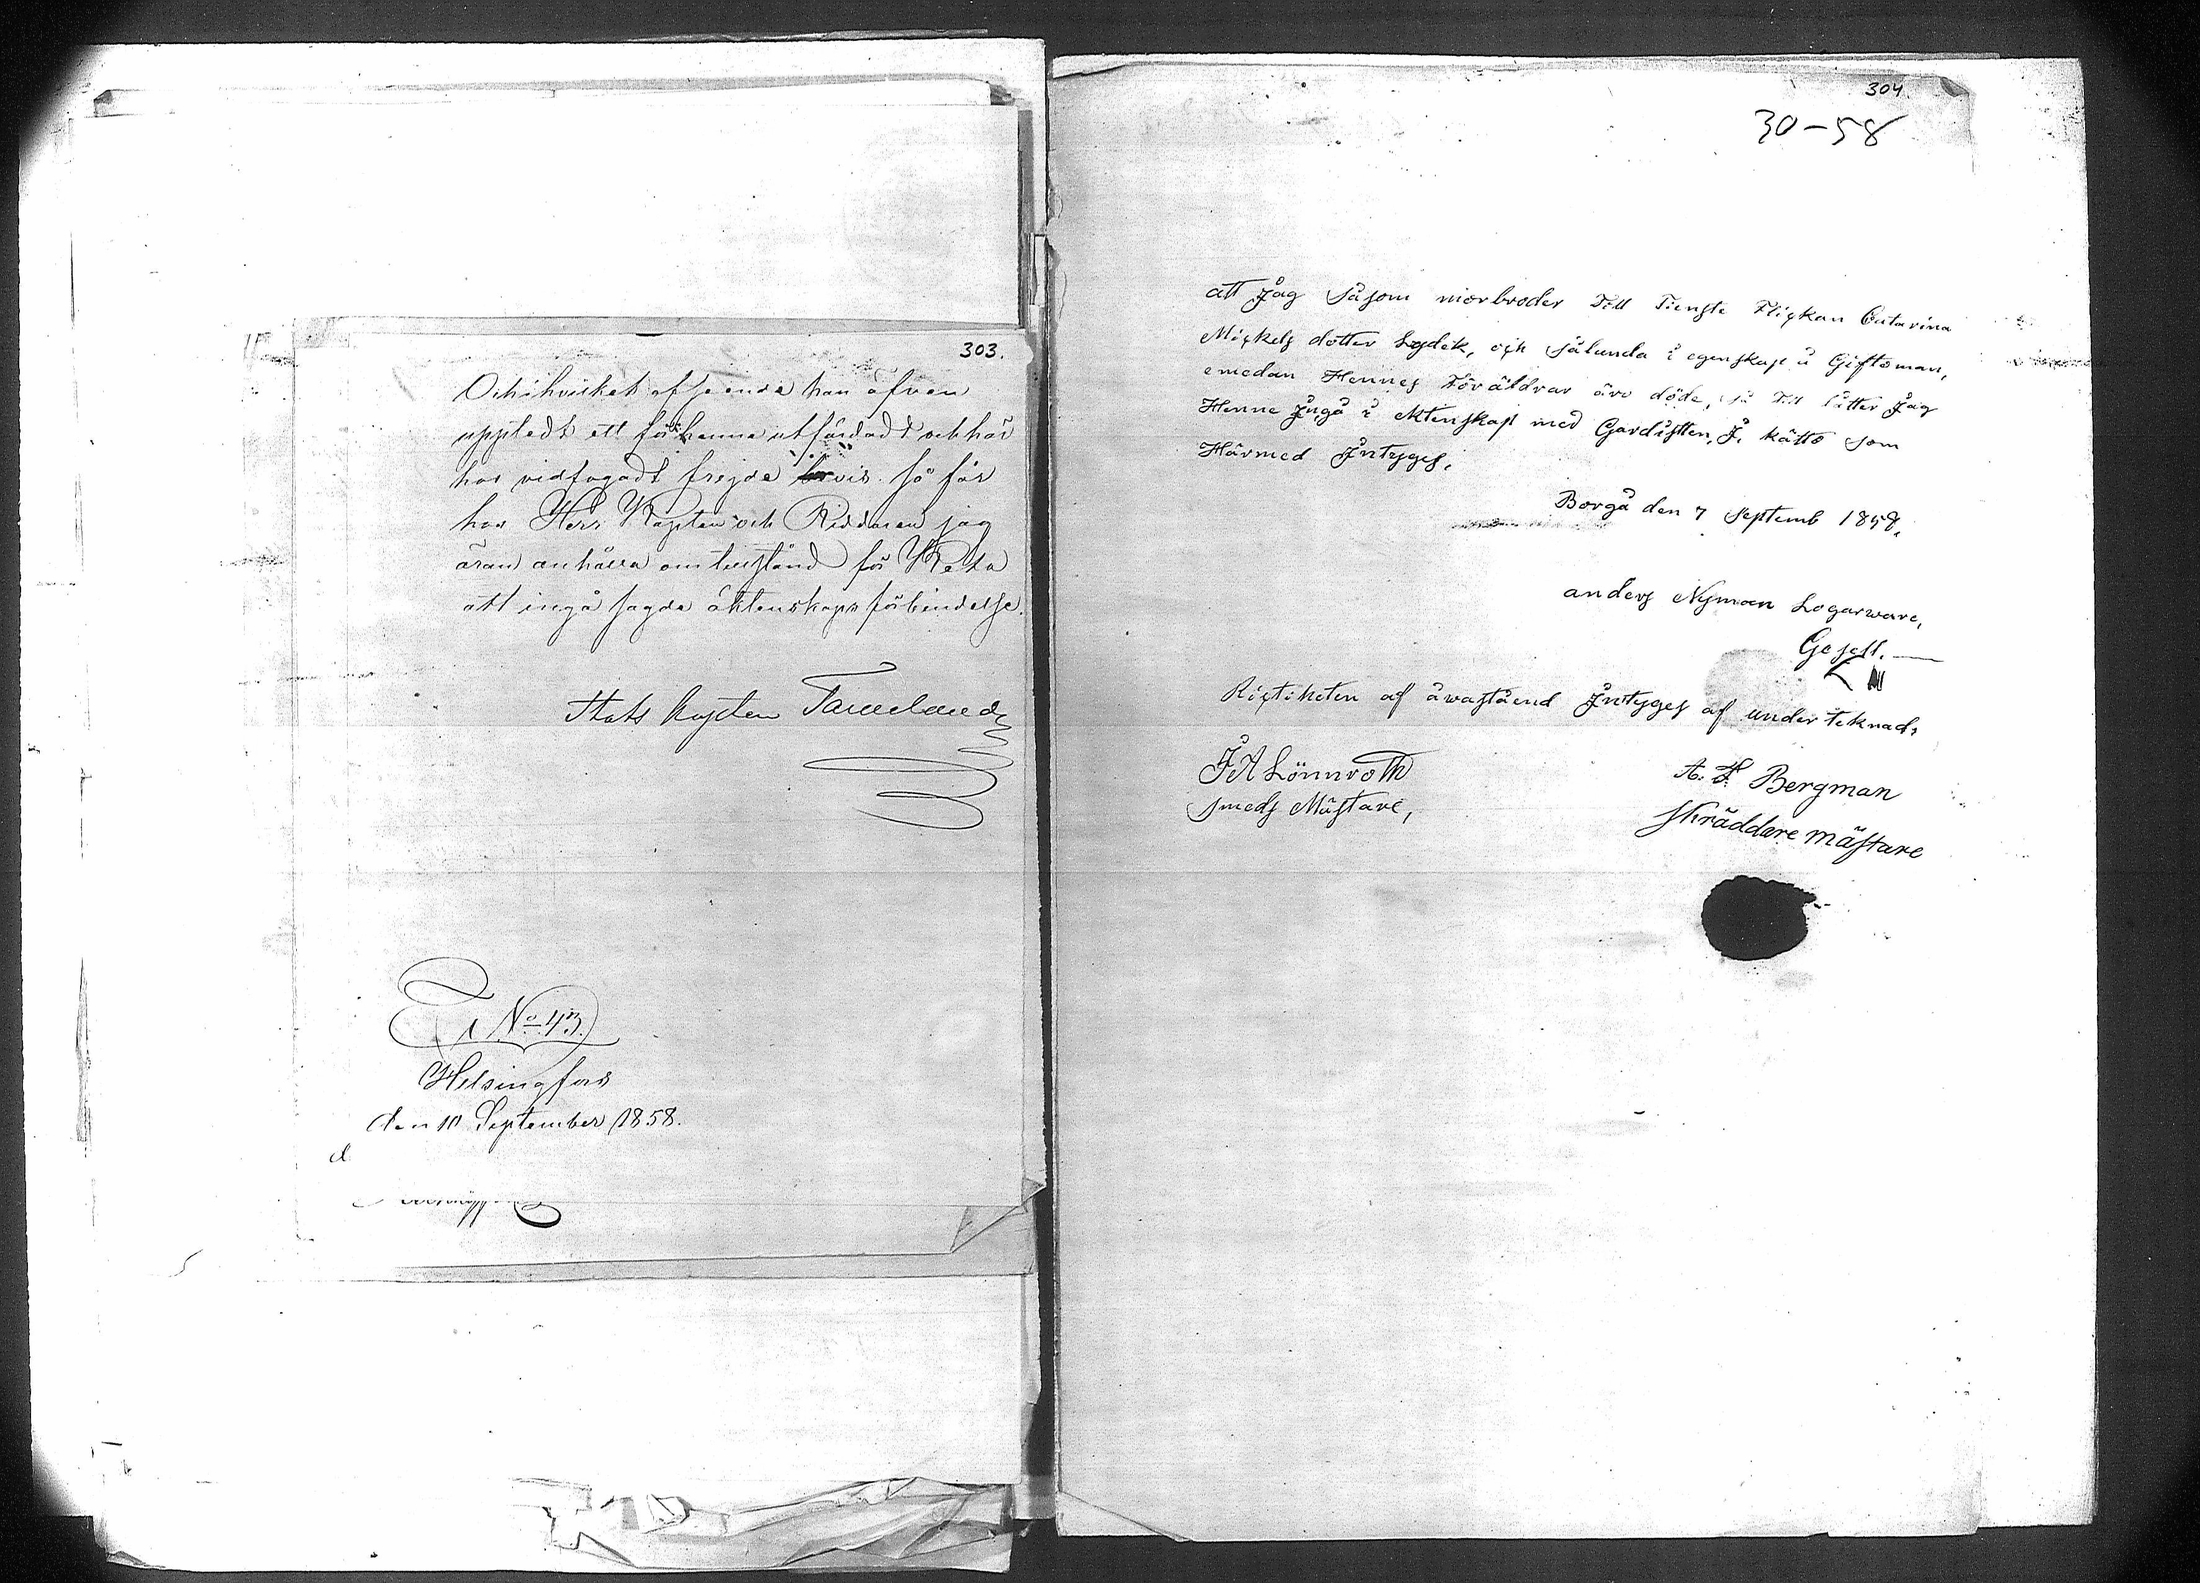 303.
Och i hvilket afseende han äfven
upptedt ett för henne utfärdadt och här
hos vidfogadt frejdebevis. så får
hos Herr Kapten och Riddaren jag
äran anhålla om tillstånd för
att ingå sagde äktenskapsförbindelse.
Stabs kapten
No 43.
Helsingfors
den 10 September 1858.
d
304
30-58
att Jag såsom morbroder Till Tienste Fliçkan Catarina
Miçkels dotter Lydek, och sålunda i egenskap u Giftoman,
emedan Hennes Föräldrar äro döde, så Till låtter Jag
Henne Jngå i Ektenskap med Gardisten, J. kätto som
Härmed Jntyges.
Borgå den 7 Septemb 1858.
anders Nyman Logarware,
Gesell.
Riçtiheten af åwastäend Jntyges af underteknad,
J A Lönnroth
smeds Mästare,
A. F. Bergman
skräddare mästare